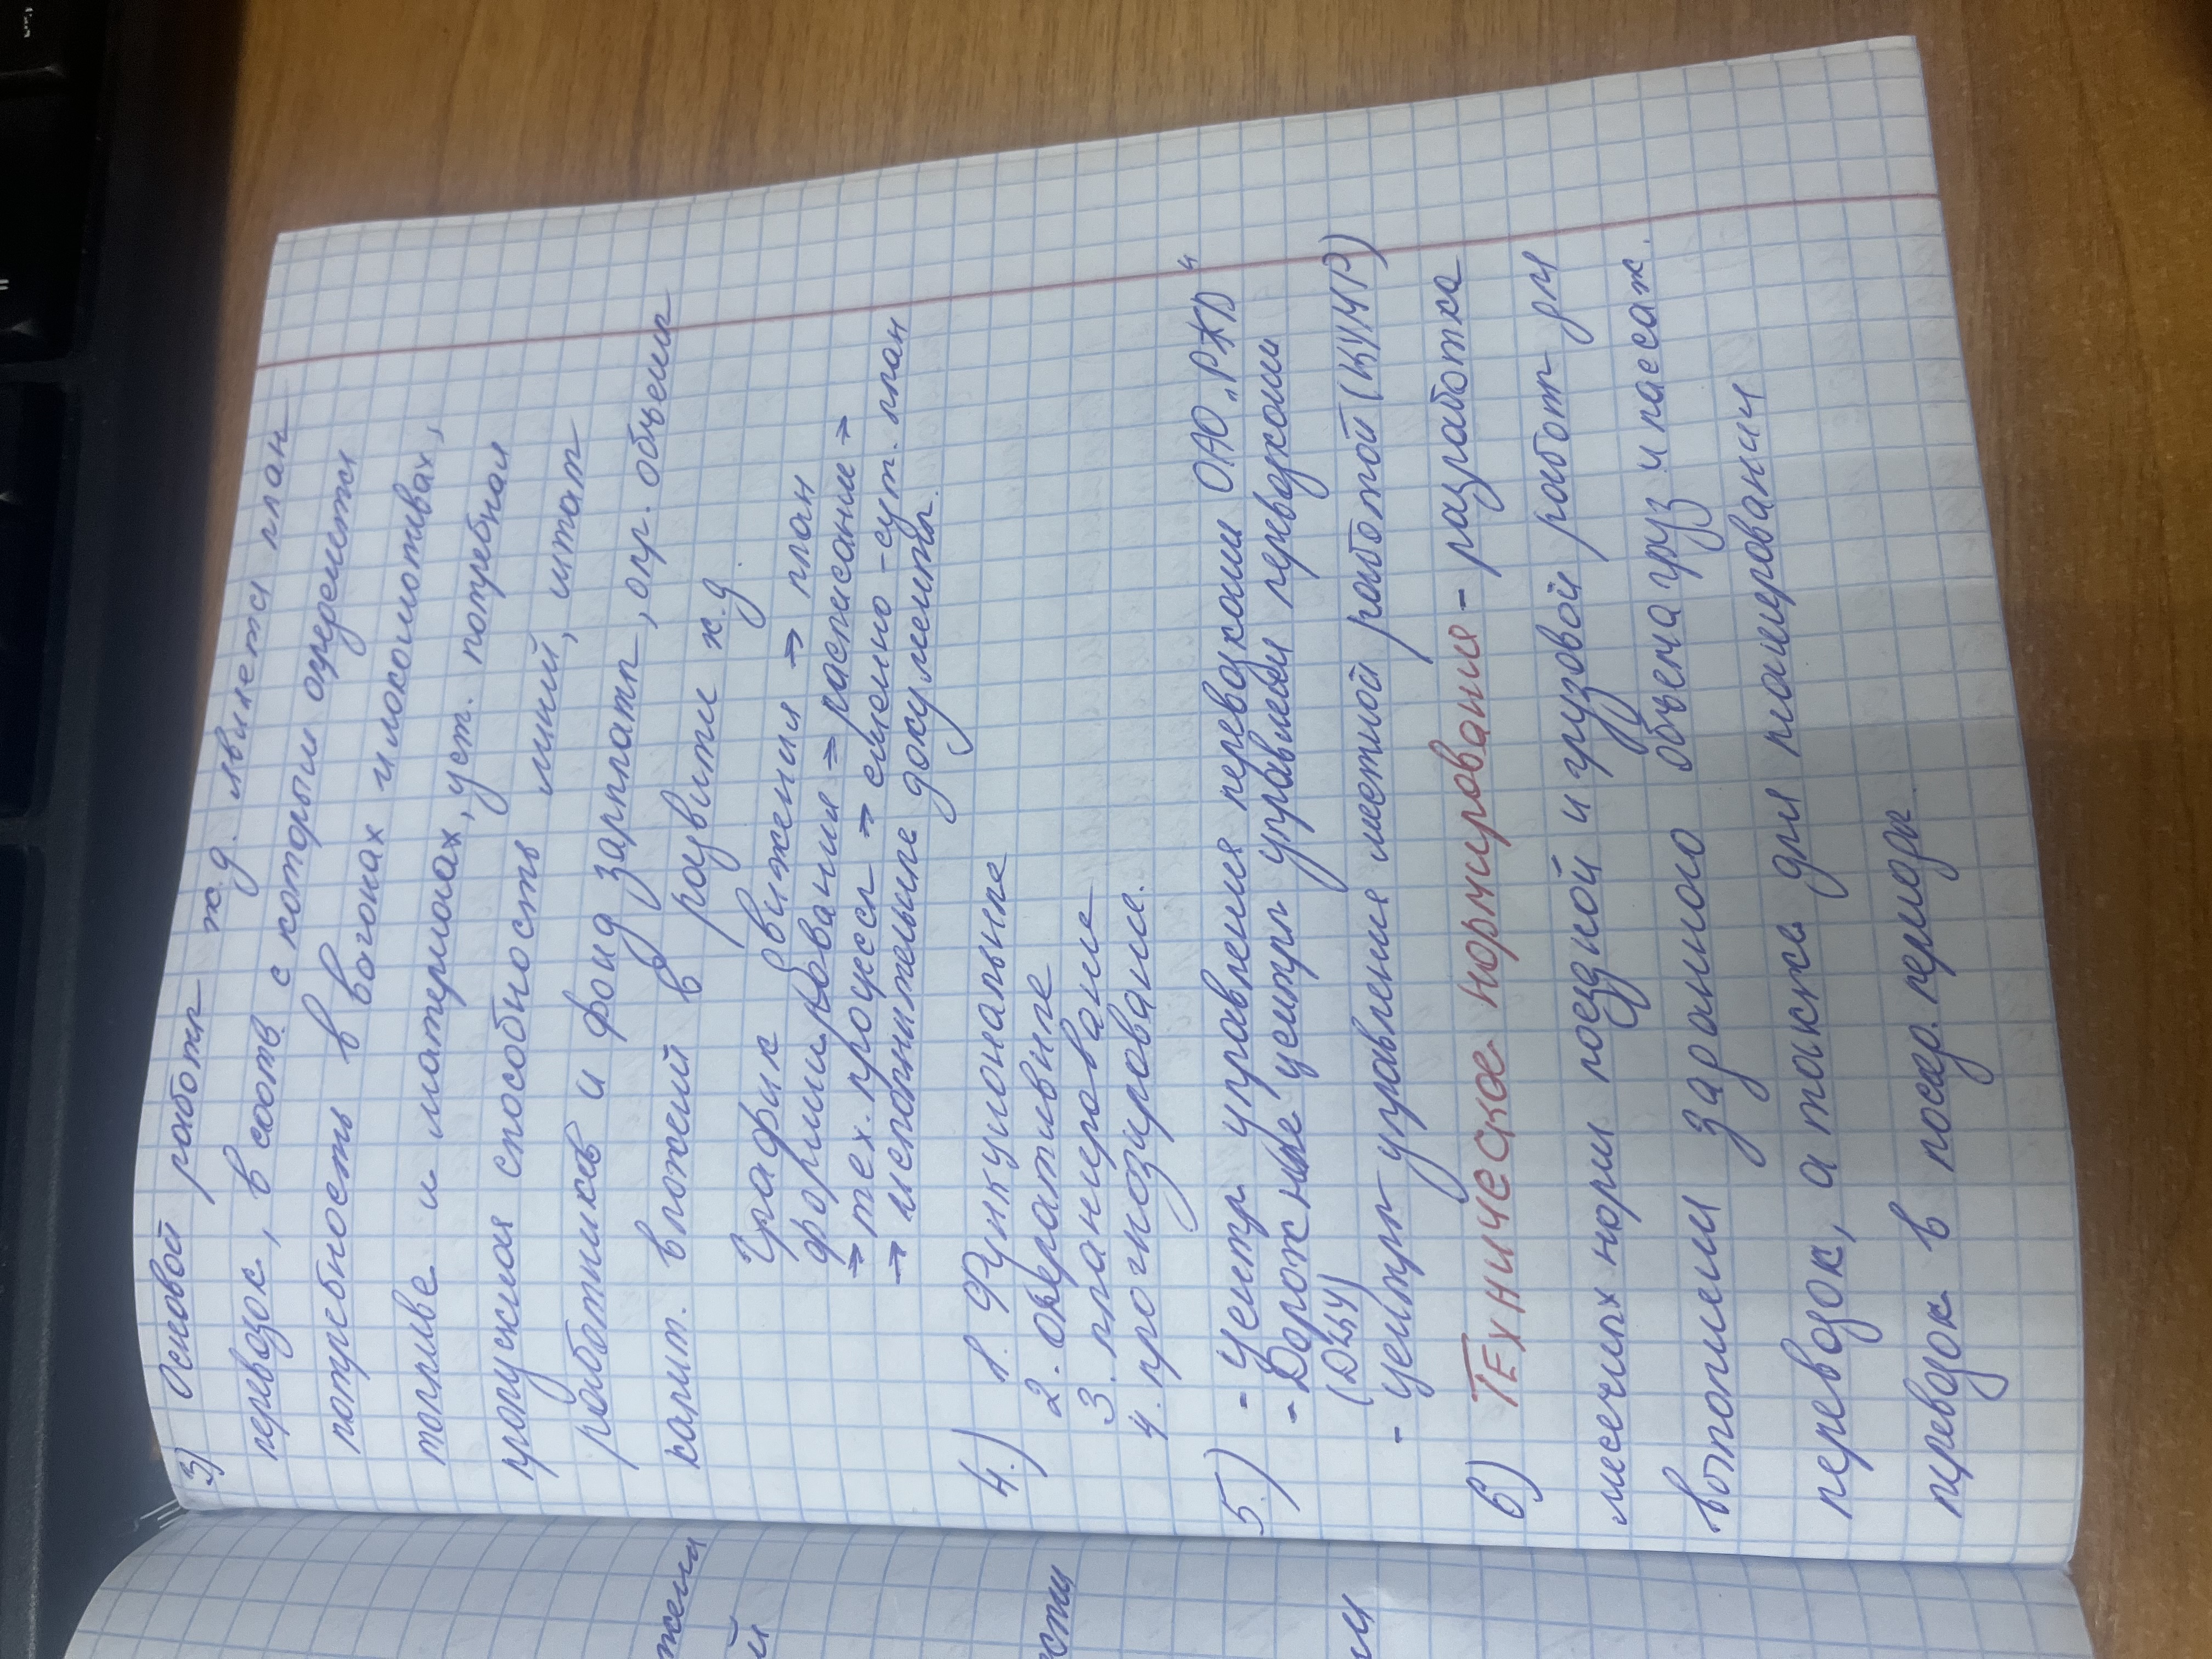 3) Основой работы ж.д. является план
перевозок, в соотв. с которым определяется
потребность в вагонах и локомотивах,
топливе и материалах, уст. потребная
пропускная способность линий, штат
работников и фонд зарплаты, опр. объемы
капит. вложений в развитие ж.д.
График движения → план
формирования → расписание →
→ тех. процессы → сменно-сут. план
→ исполнительные документы.
4.) 1. Функциональные
2. оперативные
3. планирование
4. прогнозирование.
5.) - Центр управления перевозками ОАО „РЖД"
- Дорожные центры управлен перевозками
(ДЦУ)
- центры управления местной работой (КУМР)
6) Техническое нормирование - разработка
месечных норм поездной и грузовой работ для
выполнения заранного объема груз и пассаж.
перевозок, а также для планирования
перевозок в посл. периоды.
жени
й
ости
ми